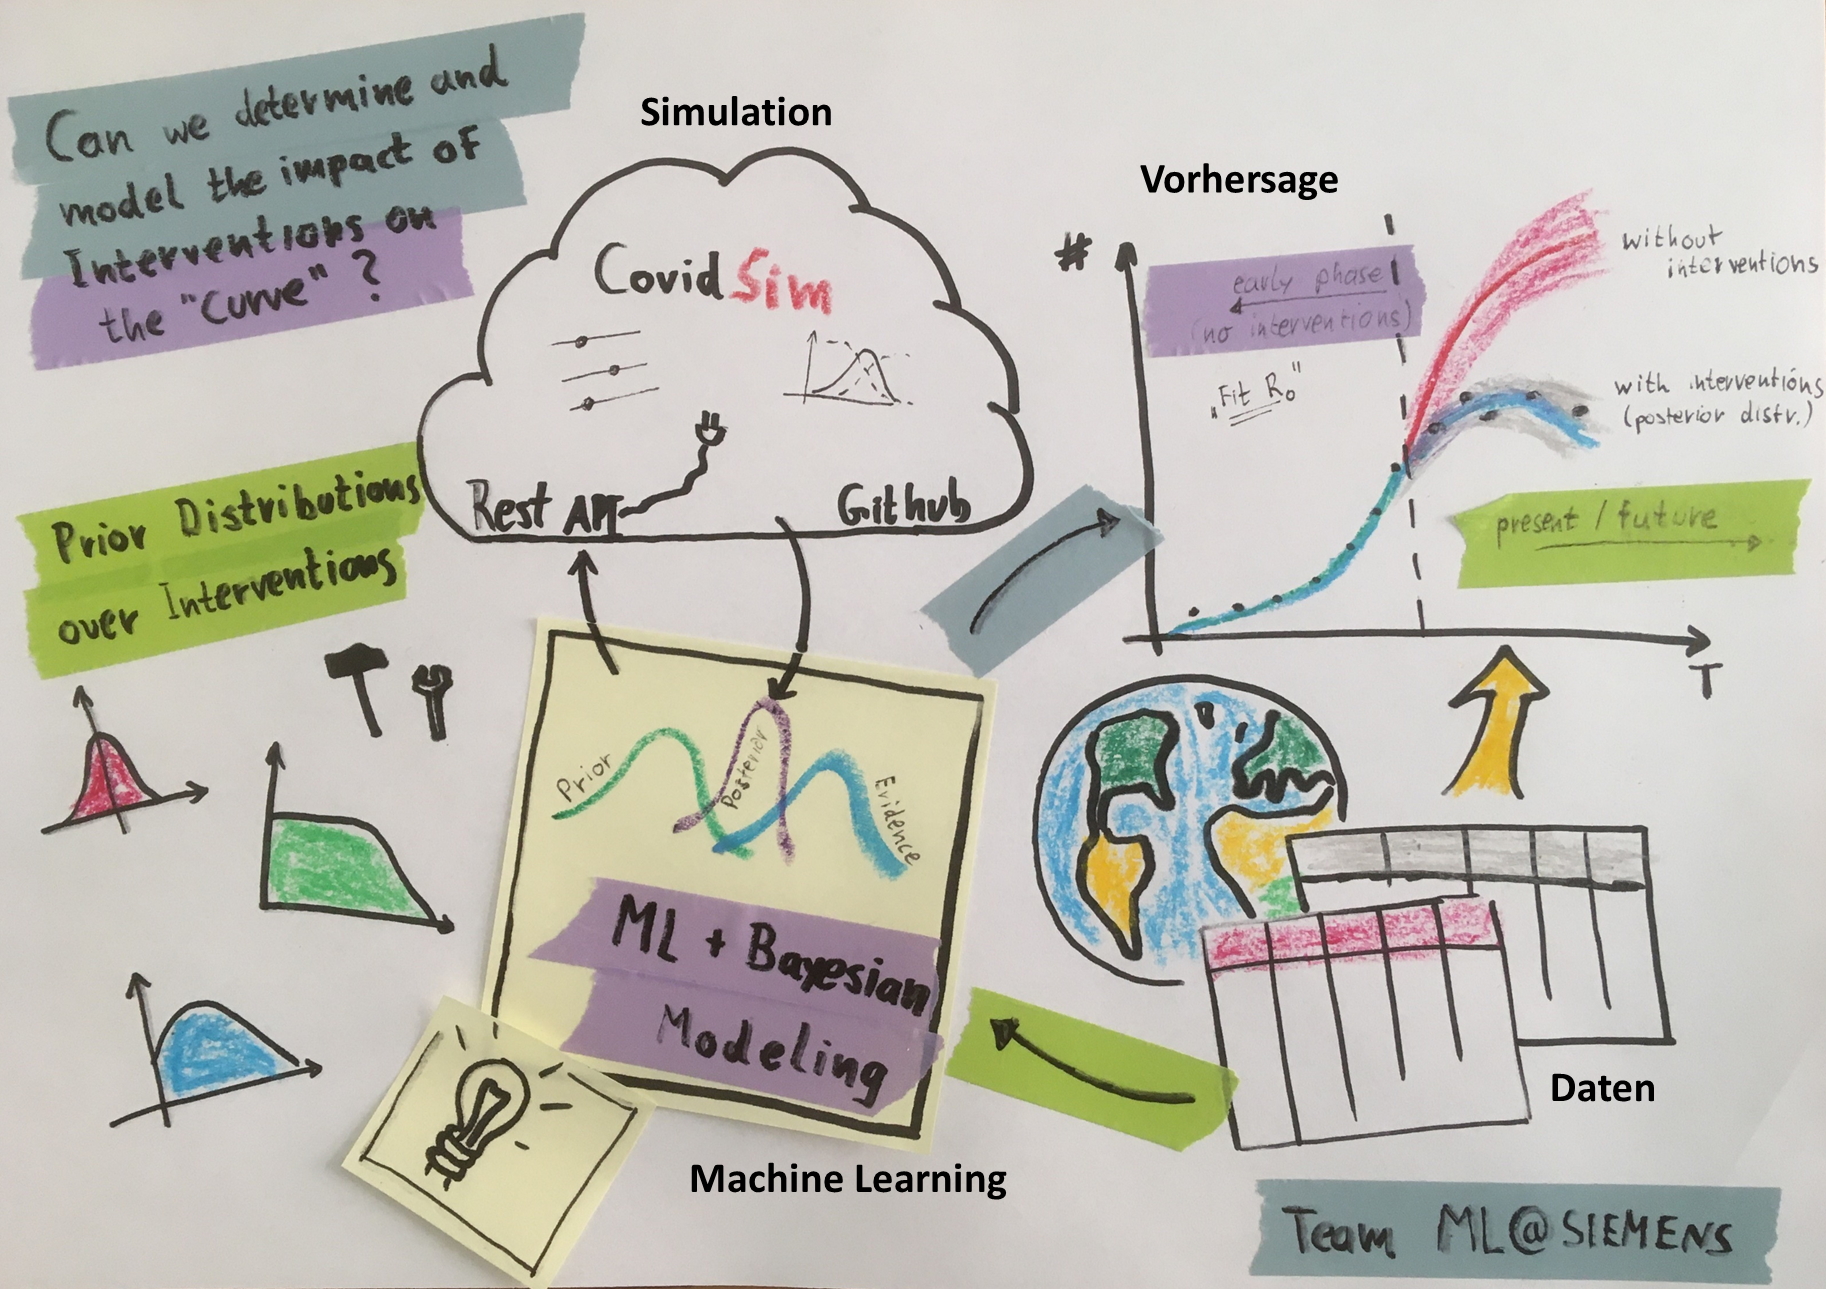 Can we determine and
model the impact of
Interventions on
the "Curve" ?
Simulation
CovidSim
Rest API
Github
Vorhersage
#
early phase
(no interventions)
"Fit R₀"
without
interventions
with interventions
(posterior distr.)
present / future
T
Prior Distributions
over Interventions
Prior
Posterior
Evidence
ML + Bayesian
Modeling
Machine Learning
Daten
Team ML@SIEMENS